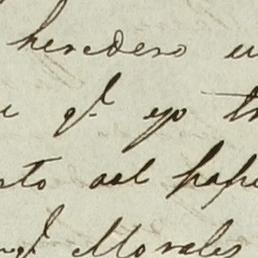 heredero
e qe yo t
sto del pape
Morales